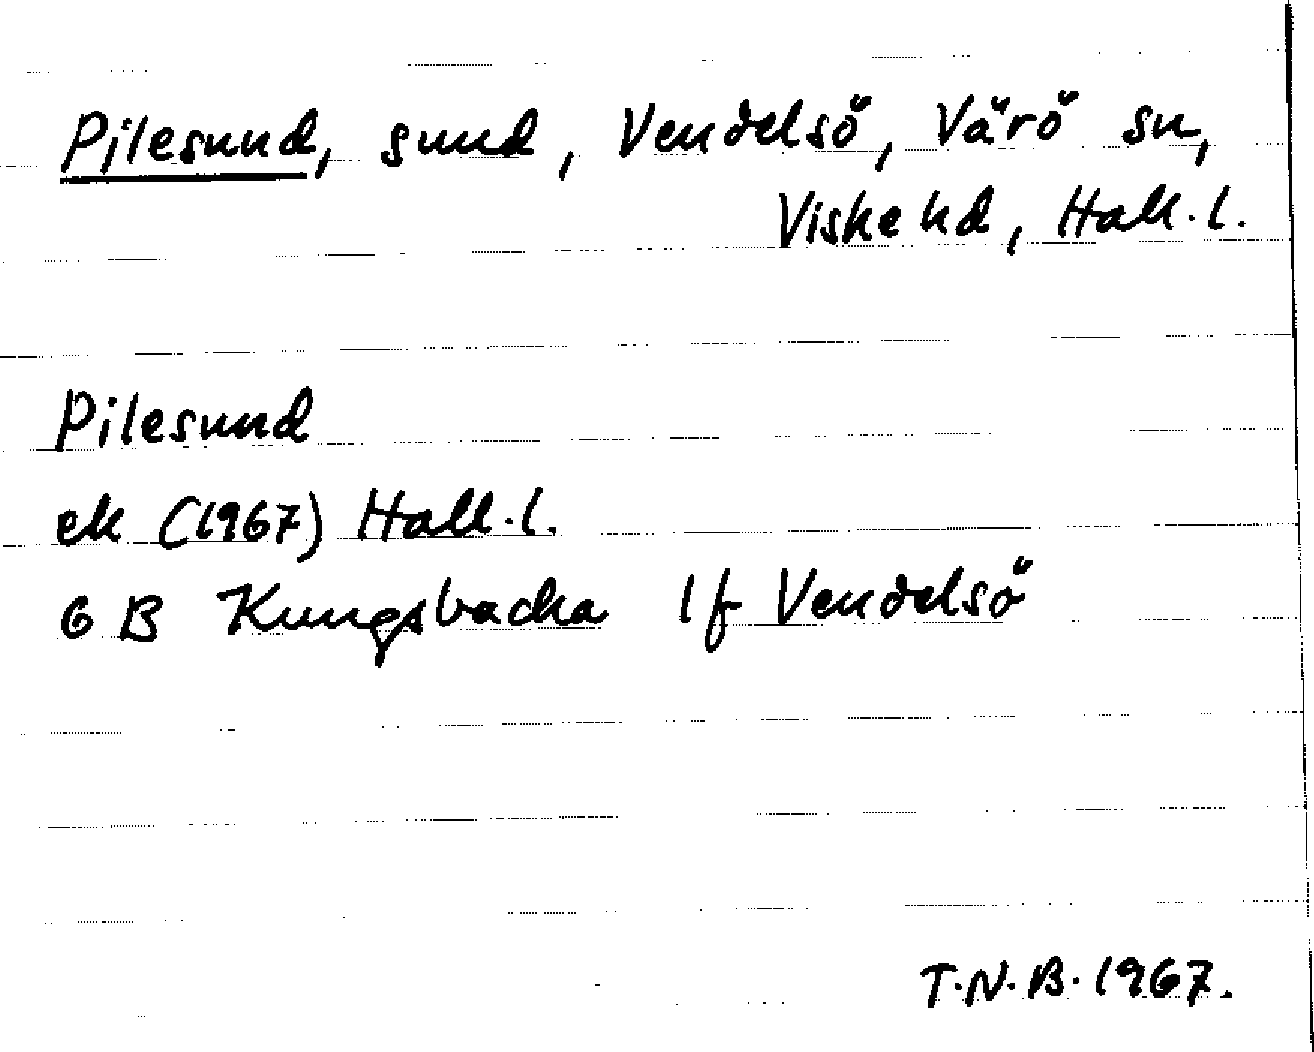 Pilesund, sund, Vendelsö, Värö sn,
Viske hd, Hall. l.
Pilesund
ek (1967) Hall. l.
6 B Kungsbacka lf Vendelsö
T.N.B. 1967.